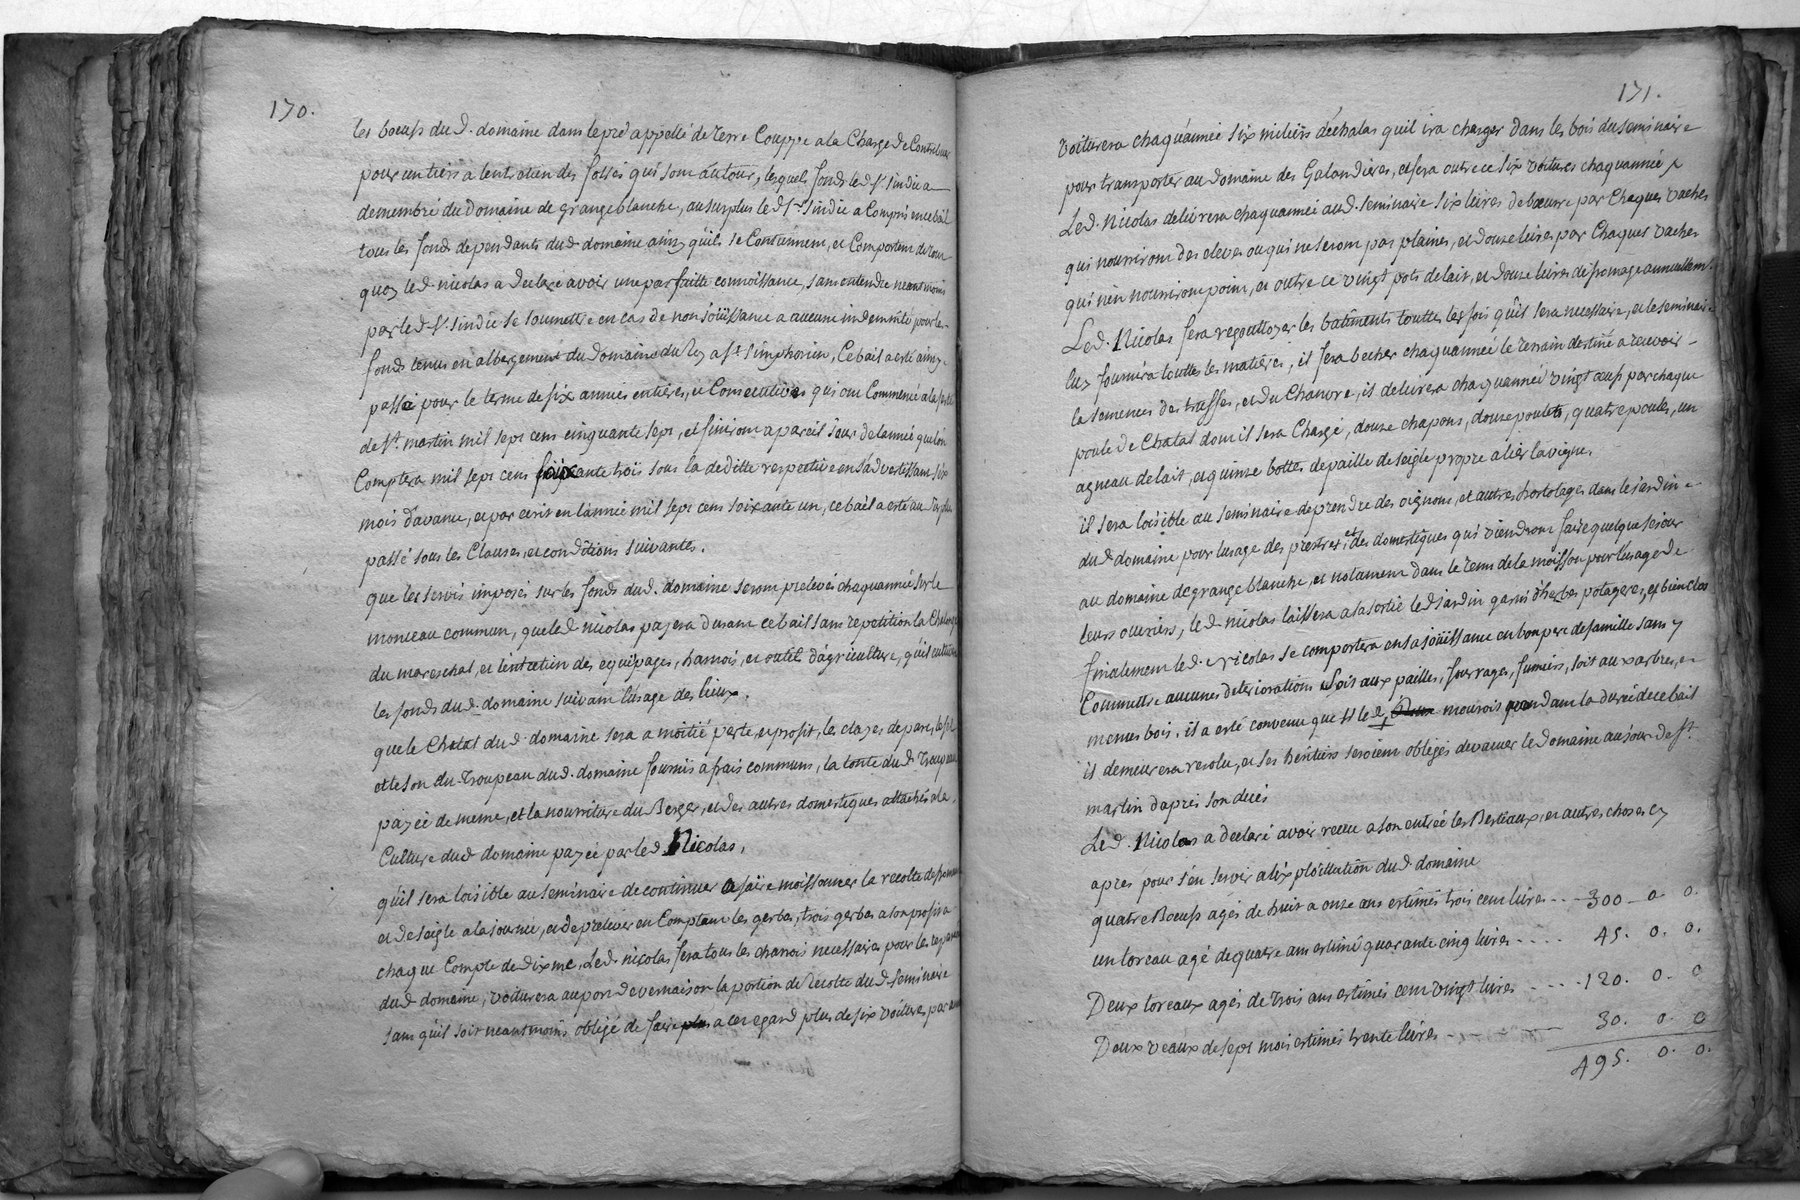 170.
les boeufs du d. domaine dans le pré appellé de Terre Couppe a la Charge de Contribuer
pour un tiers a lentretien des fossés qui sont autour, lesquels fonds led. Sr. sindic a
demembré du domaine de grange blanche, au surplus led. Sr. Sindic a Compris en ce bail
tous les fonds dependants dud. domaine ainsy quils se Contiennent, et Comportent de tout
quoy led. nicolas a declaré avoir une parfaitte connoissance, sans entendre neantmoins
par led. Sr. sindic se soumettre en cas de non jöuissance a aucune indemnité pour les
fonds tenus en albergement du domaine du Roy a St. simphorien, Ce bail a esté ainsy
passé pour le terme de six années entieres, et Consecutives qui ont Commencé a la feste
de St. martin mil sept cens cinquante sept, et finiront a pareil jour de lannée que lon
Comptera mil sept cens soixante trois sous la deditte respective en sadvertissant six
mois davance, et par ecrit en lannée mil sept cens soixante un, ce bail a esté au surplus
passé sous les Clauses, et conditions suivantes.
que les servis imposés sur les fonds dud. domaine seront prelevés chaquannée sur le
monceau commun, que led. nicolas payera durant ce bail sans repetition la
du mareschal, et lentretien des equipages, harnois, et outils dagriculture, quil cultivera
les fonds dud. domaine suivant lusage des lieux.
que le Chatal dud. domaine sera a moitié perte, et profit, les clayes de parc, le sel
et le son du Troupeau dud. domaine fournis a frais communs, la tonte dud. Troupeau
payée de meme, et la nourriture du Berger, et des autres domestiques attachés a la
Culture dud. domaine payée par led. Nicolas,
quil sera loisible au seminaire de continuer a faire moissonner la recolte de froment
et de seigle a la journée, et de prelever en Comptant les gerbes, trois gerbes a son profit a
chaque Compte de dixme, Led. nicolas fera tous les charrois necessaires pour les reparations
dud. domaine, voiturera au port de vernaison la portion de Recolte dud. Seminaire
sans quil soit neantmoins obligé de faire a cet egard plus de six voitures par année
171.
voiturera chaquannée six miliers dechalas quil ira charger dans les bois du seminaire
pour transporter au domaine des Galandieres, et fera outre ce six voitures chaquannée
Led. Nicolas delivrera chaquannée aud. seminaire six livres de beurre par Chaques vaches
qui nourriront des eleves ou qui ne seront pas plaines, et douze livres par Chaques vaches
qui nen nourriront point, et outre ce vingt pots de lait, et douze livres de fromage annuellemt.
Led. Nicolas fera regouttoyer les batiments touttes les fois quil sera necessaire, et le seminaire
luy fournira touttes les matieres, il fera becher chaquannée le terrain destiné a recevoir
la semences des truffes, et du Chanvre, il delivrera chaquannée vingt oeufs par chaque
poule de Chatal dont il sera Chargé, douze chapons, douze poulets, quatre poules, un
agneau de lait, et quinze bottes de paille de seigle propre a lier la vigne.
il sera loisible au seminaire de prendre des oignons, et autres hortolages dans le jardin
dud. domaine pour lusage des prestres, et des domestiques qui viendront faire quelque sejour
au domaine de grange blanche, et notament dans le tems de la moisson pour lusage de
leurs ouvriers, led. nicolas laissera a sa sortie led. jardin garni dherbes potageres, et bien clos
finalement led. nicolas se comportera en sa jöuissance en bon pere de famille sans y
Commettre aucunes deteriorations soit aux pailles, fourrages, fumiers, soit aux arbres, et
memes bois, il a esté convenu que si le d. mouroit dans la durée de ce bail
il demeurera resolu, et ses heritiers seroient obligés devacuer le domaine au jour de St.
martin dapres son decès
Led. Nicolas a declaré avoir recue a son entrée les Bestiaux, et autres choses cy
apres pour sen servir a lexploittation dud. domaine
quatre Boeufs agés de huit a onze ans estimés trois cent livres . . . 300. 0. 0.
un toreau agé de quatre ans estimé quarante cinq livres . . . . 45. 0. 0.
Deux toreaux agés de trois ans estimés cent vingt livres . . . . 120. 0. 0
Deux veaux de sept mois estimés trente livres . . . 30. 0. 0
495. 0. 0.